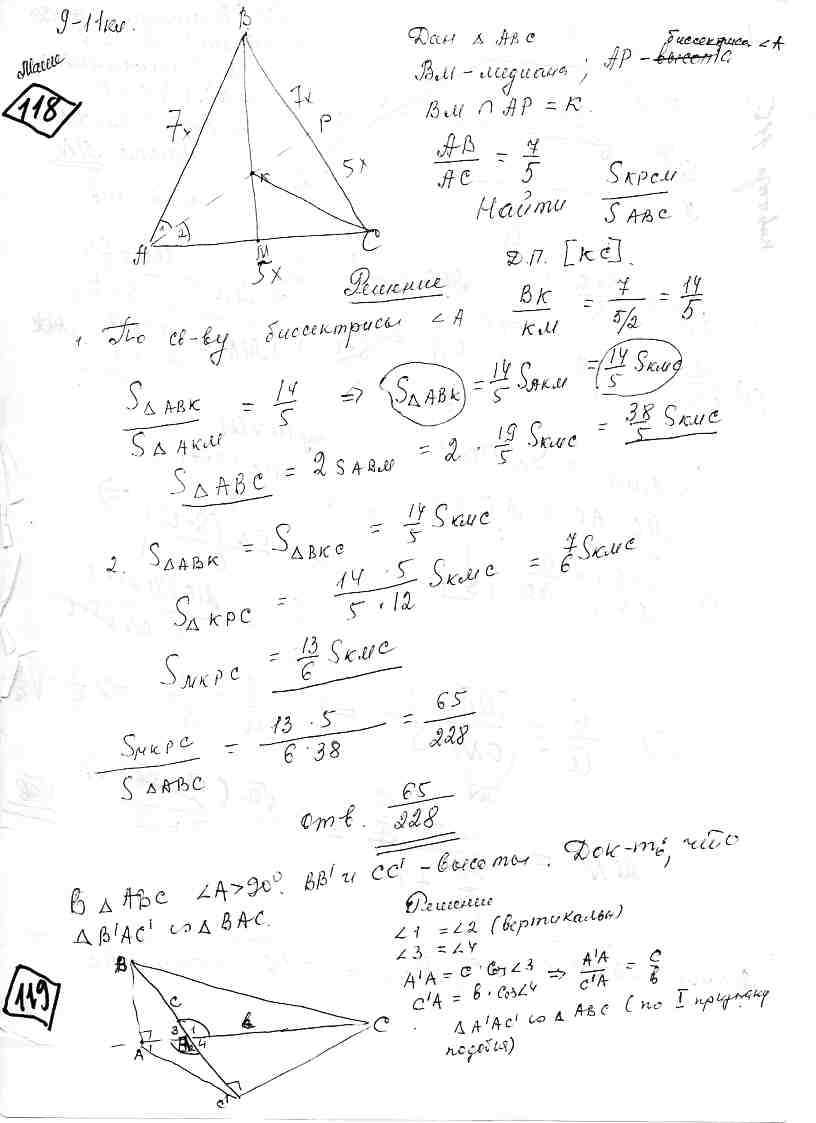 9-11кл.
118
B
7x
7x
P
5x
K
1
2
A
M
C
5x
Дан △ ABC
BM - медиана; AP - биссектриса ∠A
BM ∩ AP = K.
AB/AC = 7/5
Найти S KPCM / S ABC
Д.П. [KC].
Решение
1. По св-ву биссектрисы ∠A BK/KM = 7/(5/2) = 14/5.
S△ABK / S△AKM = 14/5 => S△ABK = 14/5 SAKM = 14/5 SKMC
S△ABC = 2 SABM = 2 · 19/5 SKMC = 38/5 SKMC
2. S△ABK = S△BKC = 14/5 SKMC
S△KPC = 14 · 5 / 5 · 12 SKMC = 7/6 SKMC
SMKPC = 13/6 SKMC
SMKPC / S△ABC = 13 · 5 / 6 · 38 = 65/228
Отв. 65/228
В △ ABC ∠A>90°. BB' и CC' - высоты. Док-ть, что
△ B'AC' ∾ △ BAC.
119
Решение
∠1 = ∠2 (вертикальн)
∠3 = ∠4
A'A = c · cos∠3 => A'A/C'A = c/b
C'A = b · cos∠4
△ A'AC' ∾ △ ABC (по I признаку
подобия)
B
C
b
C
3
1
4
A'
A
C'